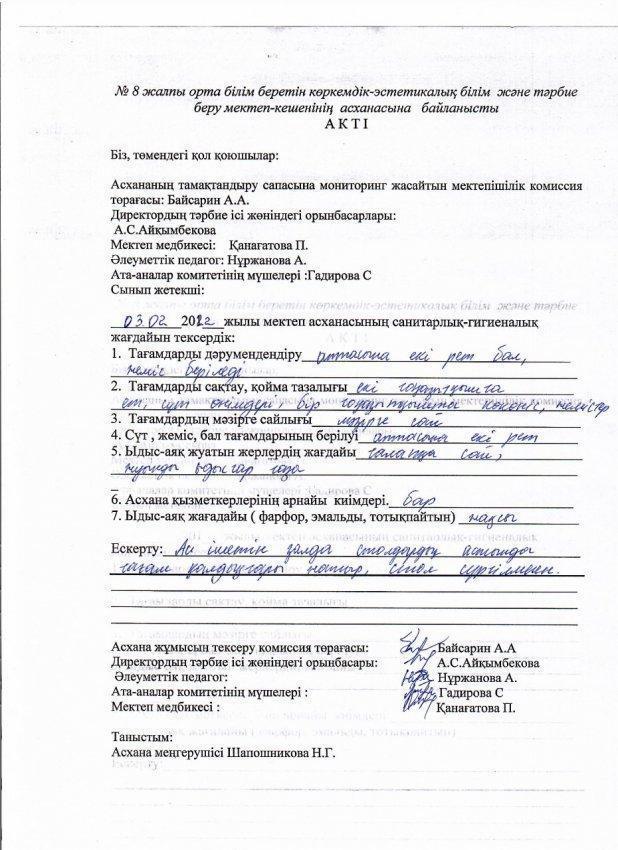 № 8 жалпы орта білім беретін көркемдік-эстетикалық білім және тәрбие
беру мектеп-кешенінің асханасына байланысты
А К Т І
Біз, төмендегі қол қоюшылар:
Асхананың тамақтандыру сапасына мониторинг жасайтын мектепішілік комиссия
төрағасы: Байсарин А.А.
Директордың тәрбие ісі жөніндегі орынбасарлары:
А.С.Айқымбекова
Мектеп медбикесі: Қанағатова П.
Әлеуметтік педагог: Нұржанова А.
Ата-аналар комитетінің мүшелері :Гадирова С
Сынып жетекші:
03.02 2022 жылы мектеп асханасының санитарлық-гигиеналық
жағдайын тексердік:
1. Тағамдарды дәрумендендіру аптасына екі рет бал,
жеміс беріледі
2. Тағамдарды сақтау, қойма тазалығы екі тоңазытқышта
ет, сүт өнімдері, бір тоңазытқышта көкөніс, жемістер
3. Тағамдардың мәзірге сайлығы мәзірге сай
4. Сүт , жеміс, бал тағамдарының берілуі аптасына екі рет
5. Ыдыс-аяқ жуатын жерлердің жағдайы талапқа сай,
жуынды ыдыстар таза
6. Асхана қызметкерлерінің арнайы киімдері. бар
7. Ыдыс-аяқ жағадайы ( фарфор, эмальды, тотықпайтын) жақсы
Ескерту: Ас ішетін залда столдардың астында
тағам қалдықтары жатыр, стол сүртілмеген.
Асхана жұмысын тексеру комиссия төрағасы: Байсарин А.А
Директордың тәрбие ісі жөніндегі орынбасары: А.С.Айқымбекова
Әлеуметтік педагог: Нұржанова А.
Ата-аналар комитетінің мүшелері : Гадирова С
Мектеп медбикесі : Қанағатова П.
Таныстым:
Асхана меңгерушісі Шапошникова Н.Г.